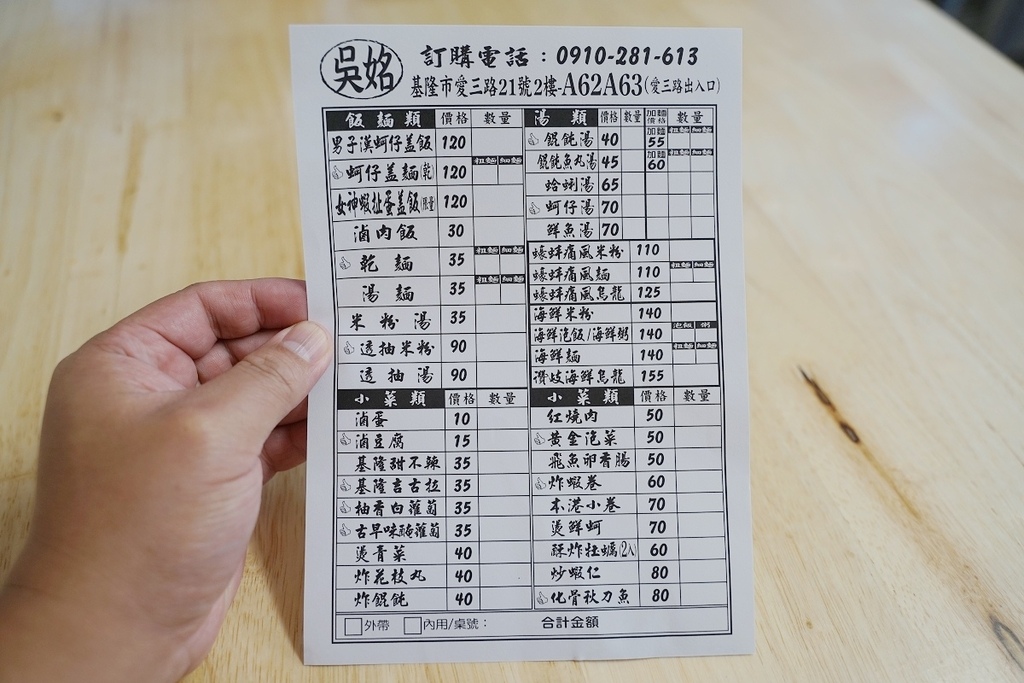 吳姳
訂購電話：0910-281-613
基隆市愛三路21號2樓-A62A63(愛三路出入口)
飯麵類 價格 數量
男子漢蚵仔盖飯 120
蚵仔盖麵(乾) 120 粗麵 細麵
女神蝦扯蛋盖飯(限量) 120
滷肉飯 30
乾麵 35 粗麵 細麵
湯麵 35 粗麵 細麵
米粉湯 35
透抽米粉 90
透抽湯 90
湯類 價格 數量 加麵價格 數量
餛飩湯 40 加麵55 粗麵 細麵
餛飩魚丸湯 45 加麵60 粗麵 細麵
蛤蜊湯 65
蚵仔湯 70
鮮魚湯 70
蠔蚌痛風米粉 110
蠔蚌痛風麵 110 粗麵 細麵
蠔蚌痛風烏龍 125
海鮮米粉 140
海鮮泡飯/海鮮粥 140 泡飯 粥
海鮮麵 140 粗麵 細麵
讚岐海鮮烏龍 155
小菜類 價格 數量
滷蛋 10
滷豆腐 15
基隆甜不辣 35
基隆吉古拉 35
柚香白蘿蔔 35
古早味醃蘿蔔 35
燙青菜 40
炸花枝丸 40
炸餛飩 40
小菜類 價格 數量
紅燒肉 50
黃金泡菜 50
飛魚卵香腸 50
炸蝦卷 60
本港小卷 70
燙鮮蚵 70
酥炸牡蠣(2入) 60
炒蝦仁 80
化骨秋刀魚 80
外帶 內用/桌號： 合計金額